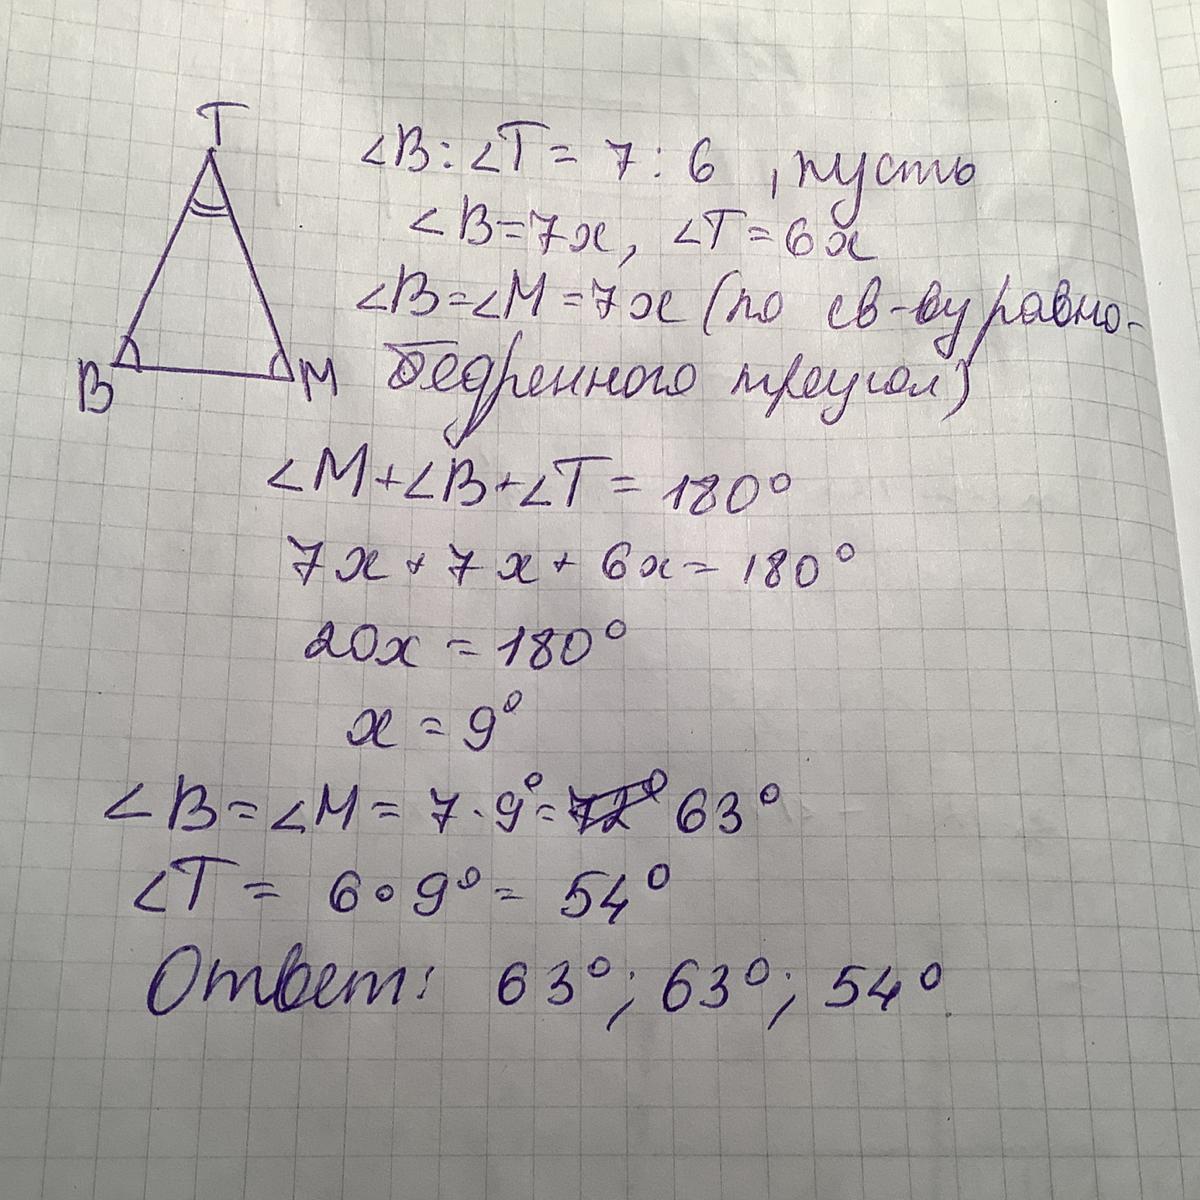 T
∠B : ∠T = 7 : 6 , пусть
∠B = 7x, ∠T = 6x
∠B = ∠M = 7x (по св-ву равно-
B M бедренного треугол)
∠M + ∠B + ∠T = 180°
7x + 7x + 6x = 180°
20x = 180°
x = 9°
∠B = ∠M = 7 · 9° = 72° 63°
∠T = 6 · 9° = 54°
Ответ: 63°; 63°; 54°